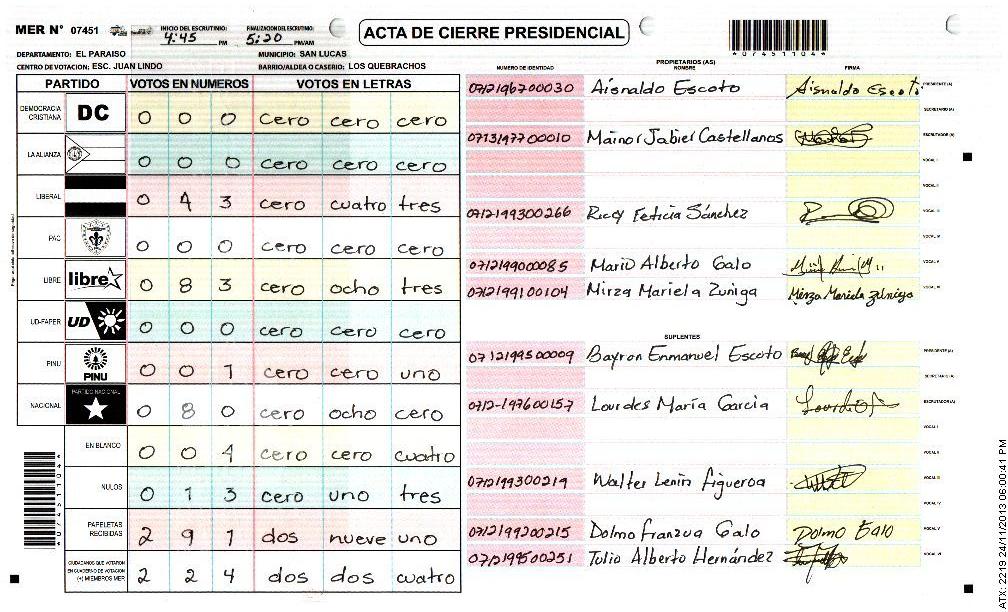 MER N° 07451
INICIO DEL ESCRUTINIO:
4:45 PM
FINALIZACION DEL ESCRUTINIO:
5:20 PM/AM
ACTA DE CIERRE PRESIDENCIAL
*07451104*
DEPARTAMENTO: EL PARAISO
MUNICIPIO: SAN LUCAS
CENTRO DE VOTACION: ESC. JUAN LINDO
BARRIO/ALDEA O CASERIO: LOS QUEBRACHOS
PARTIDO VOTOS EN NUMEROS VOTOS EN LETRAS
DEMOCRACIA CRISTIANA DC 0 0 0 cero cero cero
LA ALIANZA 0 0 0 cero cero cero
LIBERAL 0 4 3 cero cuatro tres
PAC 0 0 0 cero cero cero
LIBRE libre 0 8 3 cero ocho tres
UD-FAPER UD 0 0 0 cero cero cero
PINU PINU 0 0 1 cero cero uno
NACIONAL PARTIDO NACIONAL 0 8 0 cero ocho cero
EN BLANCO 0 0 4 cero cero cuatro
NULOS 0 1 3 cero uno tres
PAPELETAS RECIBIDAS 2 9 1 dos nueve uno
CIUDADANOS QUE VOTARON EN CUADERNO DE VOTACION (+) MIEMBROS MER 2 2 4 dos dos cuatro
*07451104*
NUMERO DE IDENTIDAD
PROPIETARIOS (AS)
NOMBRE
FIRMA
0712196700030 Aisnaldo Escoto Aisnaldo Escoto PRESIDENTE (A)
SECRETARIO (A)
0713197700010 Mainor Jabier Castellanos ESCRUTADOR (A)
VOCAL I
VOCAL II
0712199300266 Ricci Feticia Sánchez VOCAL III
VOCAL IV
0712199000085 Mario Alberto Galo VOCAL V
0712199100104 Mirza Mariela Zuniga Mirza Mariela Zúniga VOCAL VI
SUPLENTES
0712199500009 Bayron Enmanuel Escoto PRESIDENTE (A)
SECRETARIO (A)
0712-197600157 Lourdes María Garcia ESCRUTADOR (A)
VOCAL I
VOCAL II
0712199300219 Walter Lenin figueroa VOCAL III
VOCAL IV
0712199200215 Dolmo franzua Galo Dolmo Galo VOCAL V
0712199500251 Tulio Alberto Hernández VOCAL VI
ATX: 2219 24/11/2013 06:00:41 PM